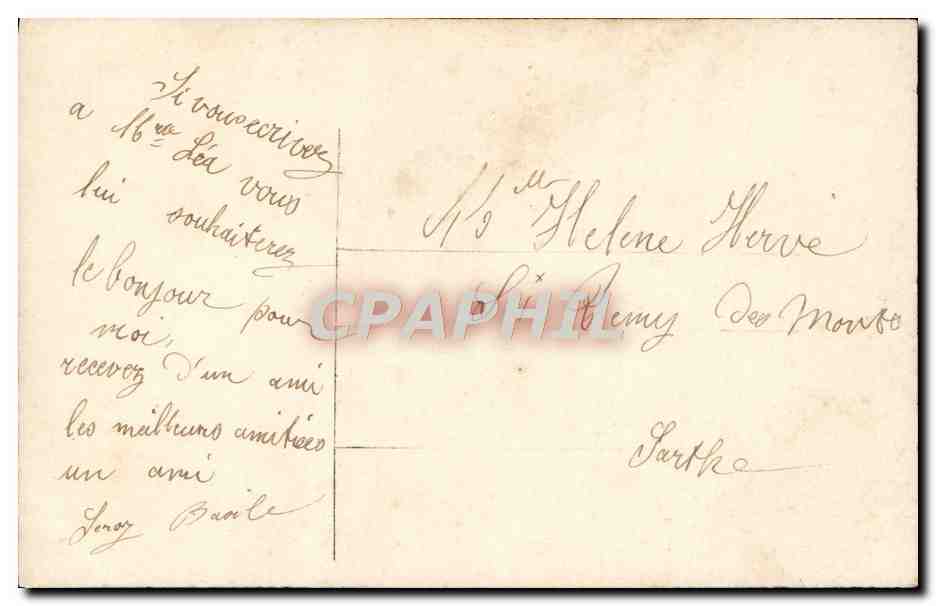 Si vous ecrivez
a Mme Léa vous
lui souhaiterez
le bonjour pour
moi,
recevez d'un ami
les meilleurs amitiées
un ami
Leroy Basile
Melle Helene Herve
St Remy des Monts
Sarthe
CPAPHIL